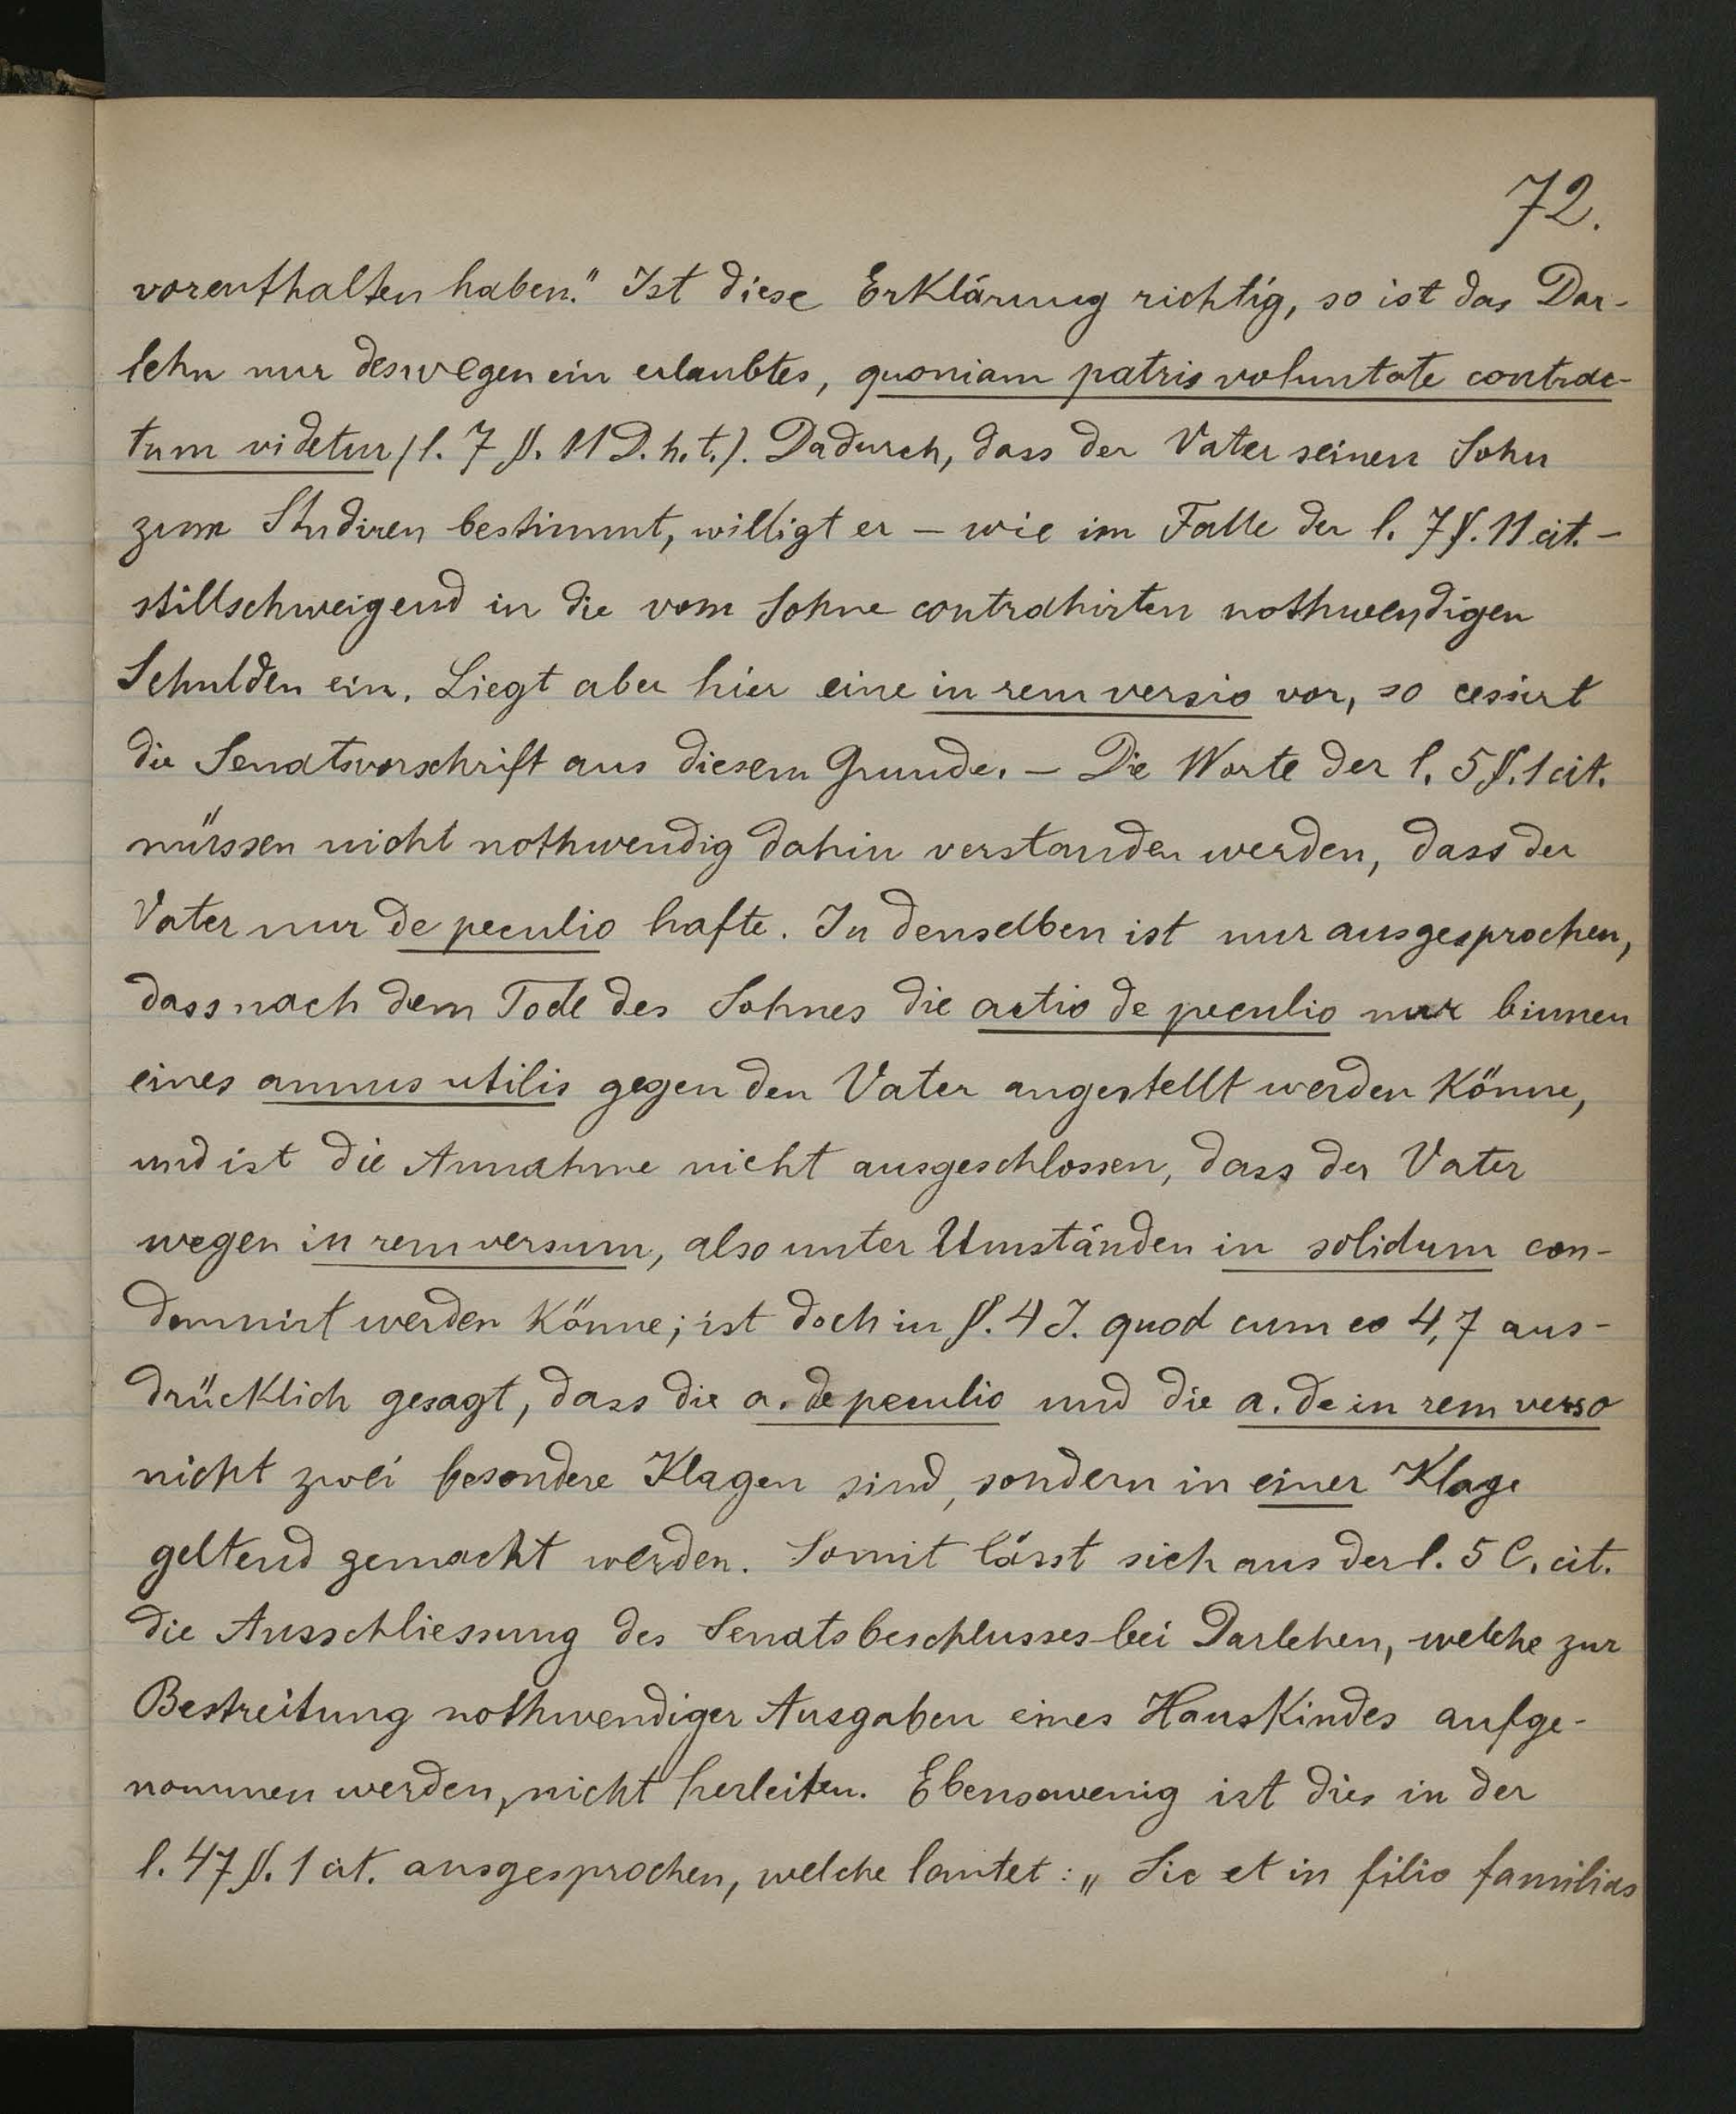 72.
vorenthalten haben." Ist diese Erklärung richtig, so ist das Dar-
lehn nur deswegen ein erlaubtes, quoniam patris voluntate contrac-
tum videtur (l. 7 §. 11 D. h. t.). Dadurch, dass der Vater seinen Sohn
zum Studiren bestimmt, willigt er – wie im Falle der l. 7 §. 11 cit. –
stillschweigend in die vom Sohne contrahirten nothwendigen
Schulden ein. Liegt aber hier eine in rem versio vor, so cessirt
die Senatsvorschrift aus diesem Grunde. – Die Worte der l. 5 §. 1 cit.
müssen nicht nothwendig dahin verstanden werden, dass der
Vater nur de peculio hafte. In denselben ist nur ausgesprochen,
dass nach dem Tode des Sohnes die actio de peculio nur binnen
eines annus utilis gegen den Vater angestellt werden könne,
und ist die Annahme nicht ausgeschlossen, dass der Vater
wegen in rem versum, also unter Umständen in solidum con-
demnirt werden könne; ist doch in §. 4 J. quod cum eo 4,7 aus-
drücklich gesagt, dass die a. de peculio und die a. de in rem verso
nicht zwei besondere Klagen sind, sondern in einer Klage
geltend gemacht werden. Somit lässt sich aus der l. 5 C. cit.
die Ausschliessung des Senatsbeschlusses bei Darlehen, welche zur
Bestreitung nothwendiger Ausgaben eines Hauskindes aufge-
nommen werden, nicht herleiten. Ebensowenig ist dies in der
l. 47 §. 1 cit. ausgesprochen, welche lautet: „Sic et in filio familias